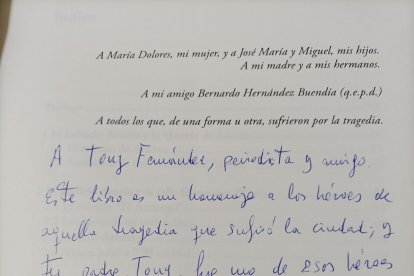 Índice
A María Dolores, mi mujer, y a José María y Miguel, mis hijos.
A mi madre y a mis hermanos.
A mi amigo Bernardo Hernández Buendía (q.e.p.d.)
A todos los que, de una forma u otra, sufrieron por la tragedia.
A Tony Fernández, periodista y amigo.
Este libro es un homenaje a los héroes de
aquella tragedia que sufrió la ciudad; y
tu padre Tony, fue uno de esos héroes